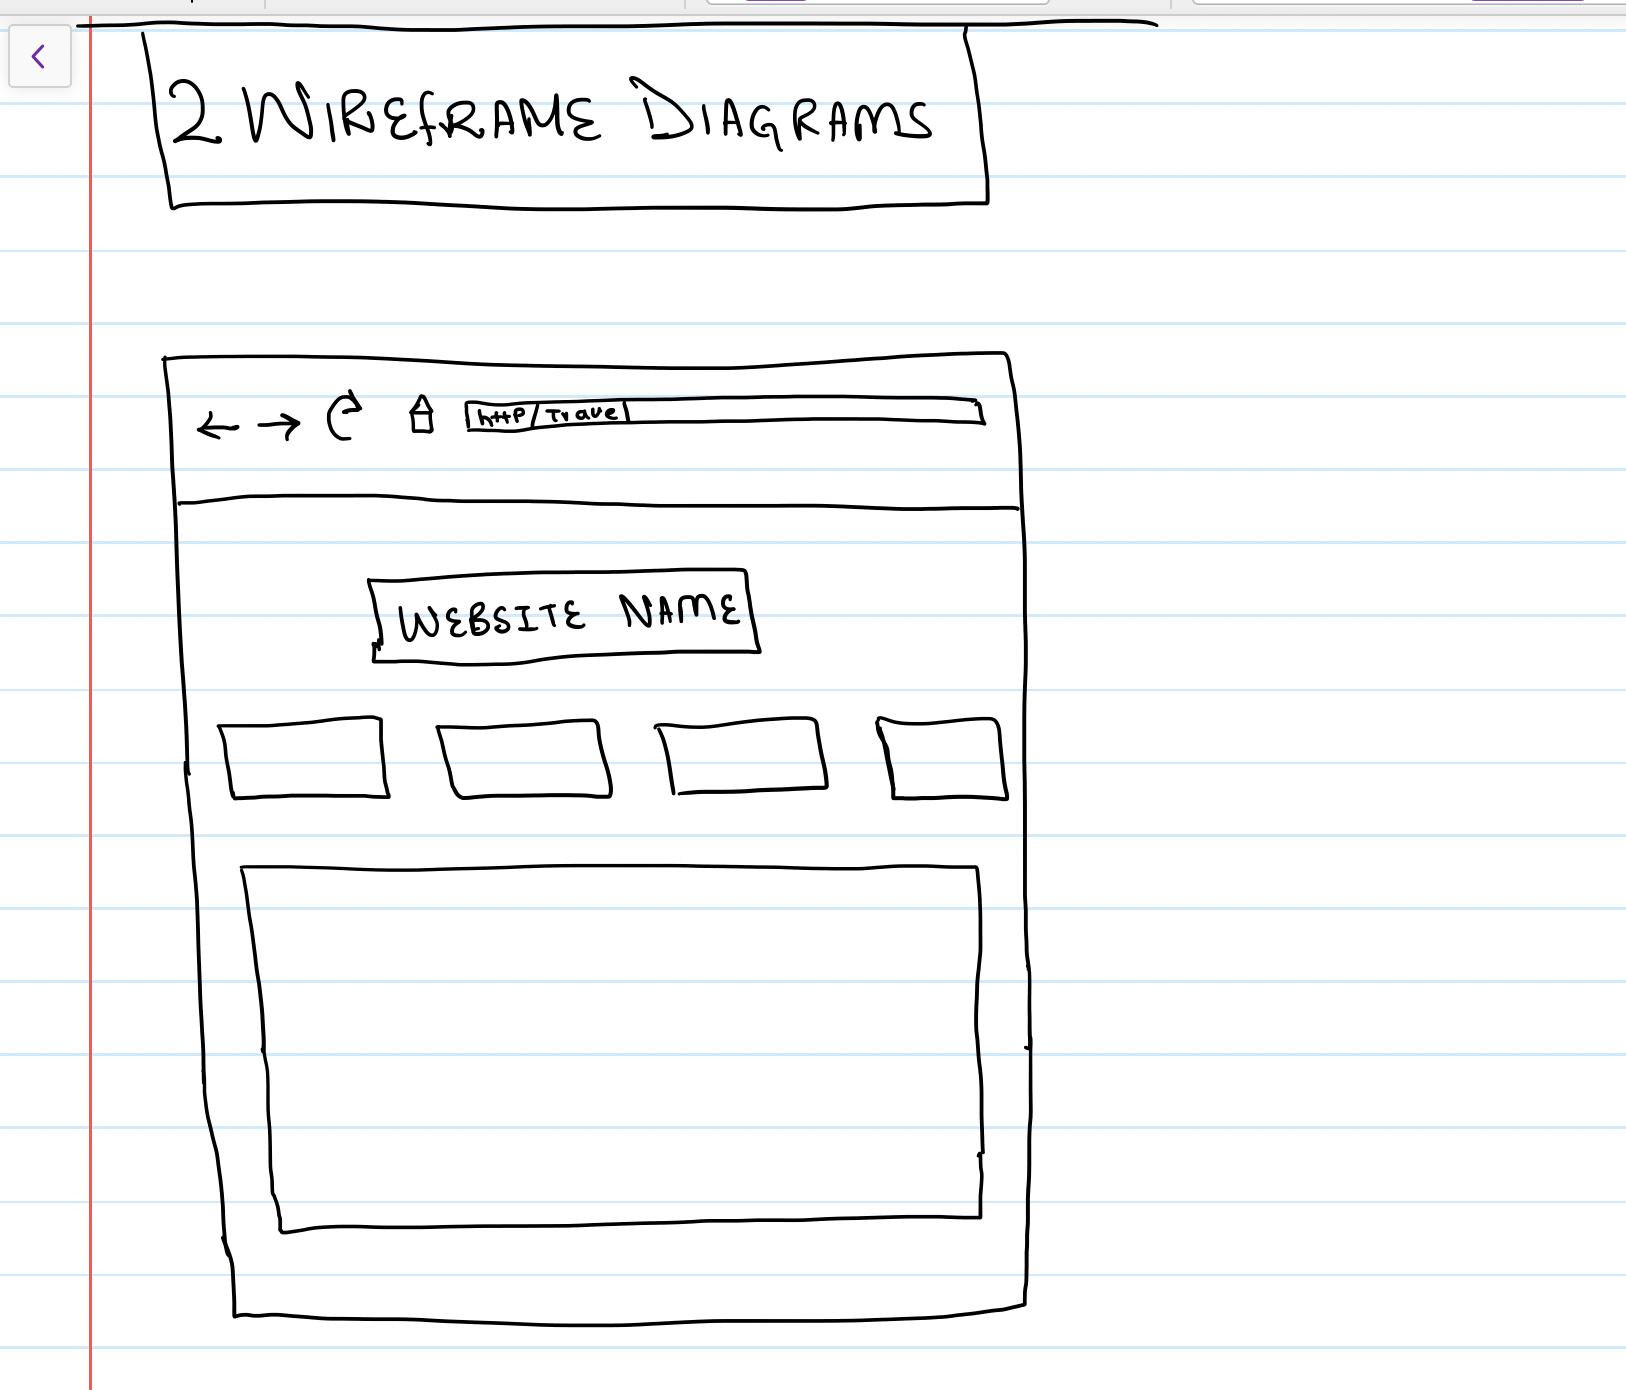 2 WIREFRAME DIAGRAMS
http/Trave
WEBSITE NAME